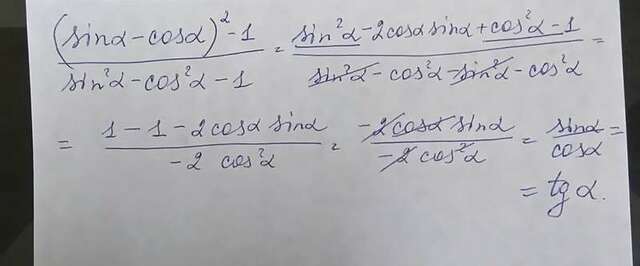 (sinα - cosα)² - 1 / sin²α - cos²α - 1 = sin²α - 2cosα sinα + cos²α - 1 / sin²α - cos²α - sin²α - cos²α =
= 1 - 1 - 2cosα sinα / -2 cos²α = -2cosα sinα / -2 cos²α = sinα / cosα =
= tg α.